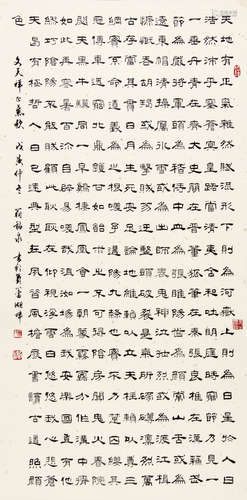 天地有正氣雜然賦流形下則為河嶽上則為日星於人曰
浩然沛乎塞蒼冥皇路當清夷含和吐明庭時窮節乃見一
一垂丹青在齊太史簡在晉董狐筆在秦張良椎在漢蘇武
節為嚴將軍頭為嵇侍中血為張睢陽齒為顏常山舌或為
遼東帽清操厲冰雪或為出師表鬼神泣壯烈或為渡江楫
慷慨吞胡羯或為擊賊笏逆豎頭破裂是氣所磅礴凜烈萬
古存當其貫日月生死安足論地維賴以立天柱賴以尊三
綱實繫命道義為之根嗟予遘陽九隸也實不力楚囚纓其
冠傳車送窮北鼎鑊甘如飴求之不可得陰房闃鬼火春院
閟天黑牛驥同一皁雞棲鳳凰食一朝蒙霧露分作溝中瘠
如此再寒暑百沴自辟易哀哉沮洳場為我安樂國豈有他
繆巧陰陽不能賊顧此耿耿在仰視浮雲白悠悠我心悲蒼
天曷有極哲人日已遠典型在夙昔風簷展書讀古道照顏
色
文天祥正氣歌 戊寅仲冬